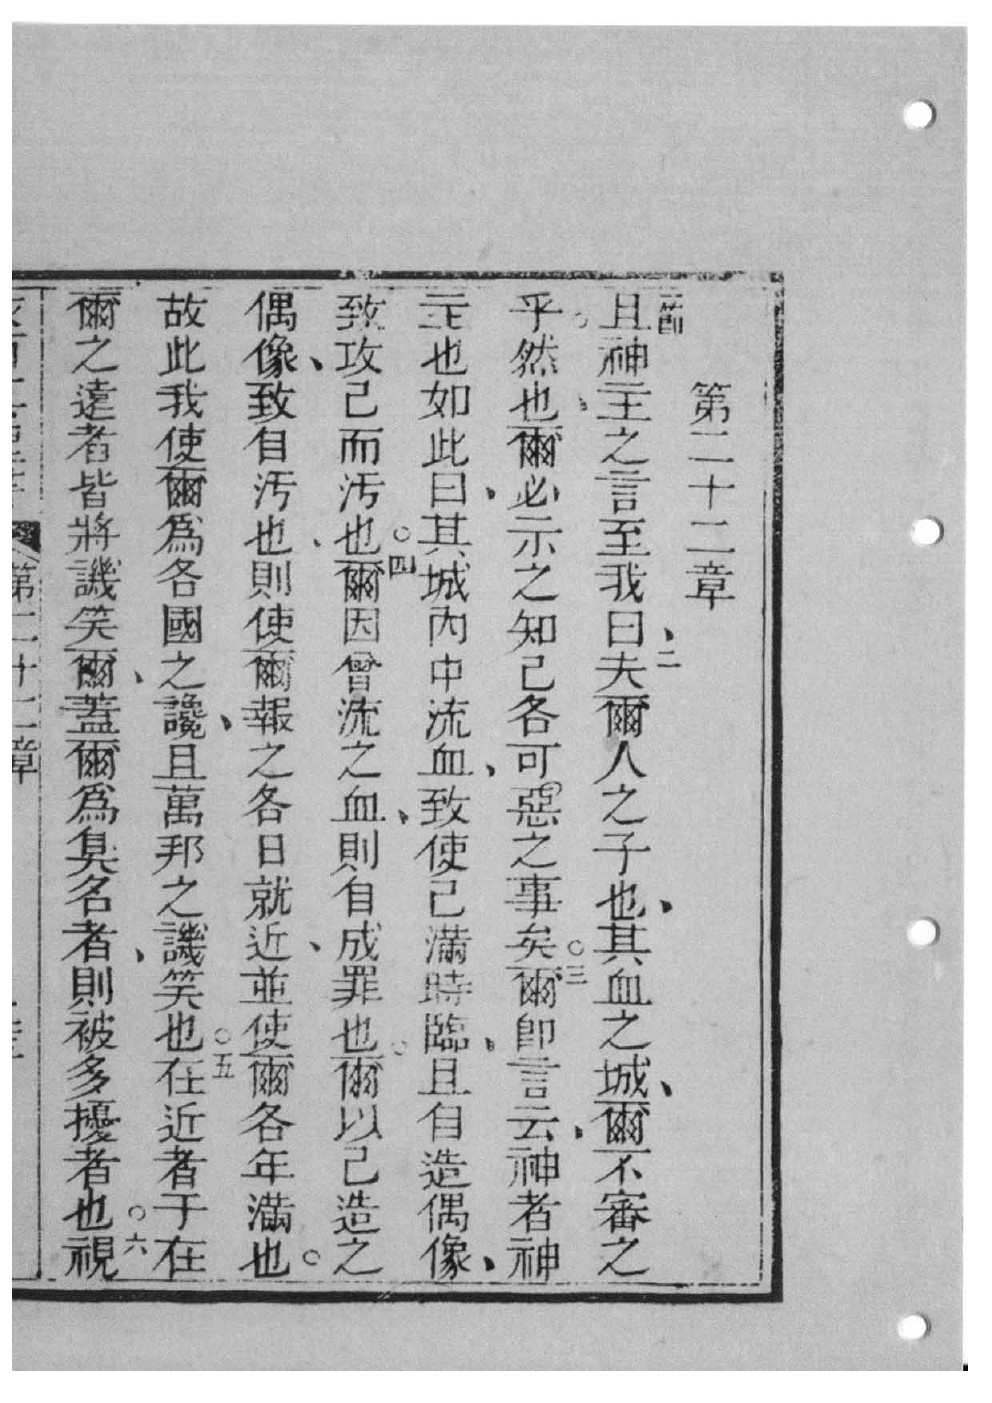 第二十二章
一節且神主之言至我曰、二夫爾人之子也、其血之城、爾不審之
乎、然也、爾必示之知己各可惡之事矣。三爾即言云、神者神
主也如此曰、其城內中流血、致使己滿時臨、且自造偶像、
致攻己而汚也。四爾因曾流之血、則自成罪也。爾以己造之
偶像、致自汚也、則使爾報之各日就近、並使爾各年滿也。
故此我使爾爲各國之讒、且萬邦之譏笑也。五在近者于在
爾之遠者皆將譏笑爾、蓋爾爲臭名者、則被多擾者也。六視
第二十二章